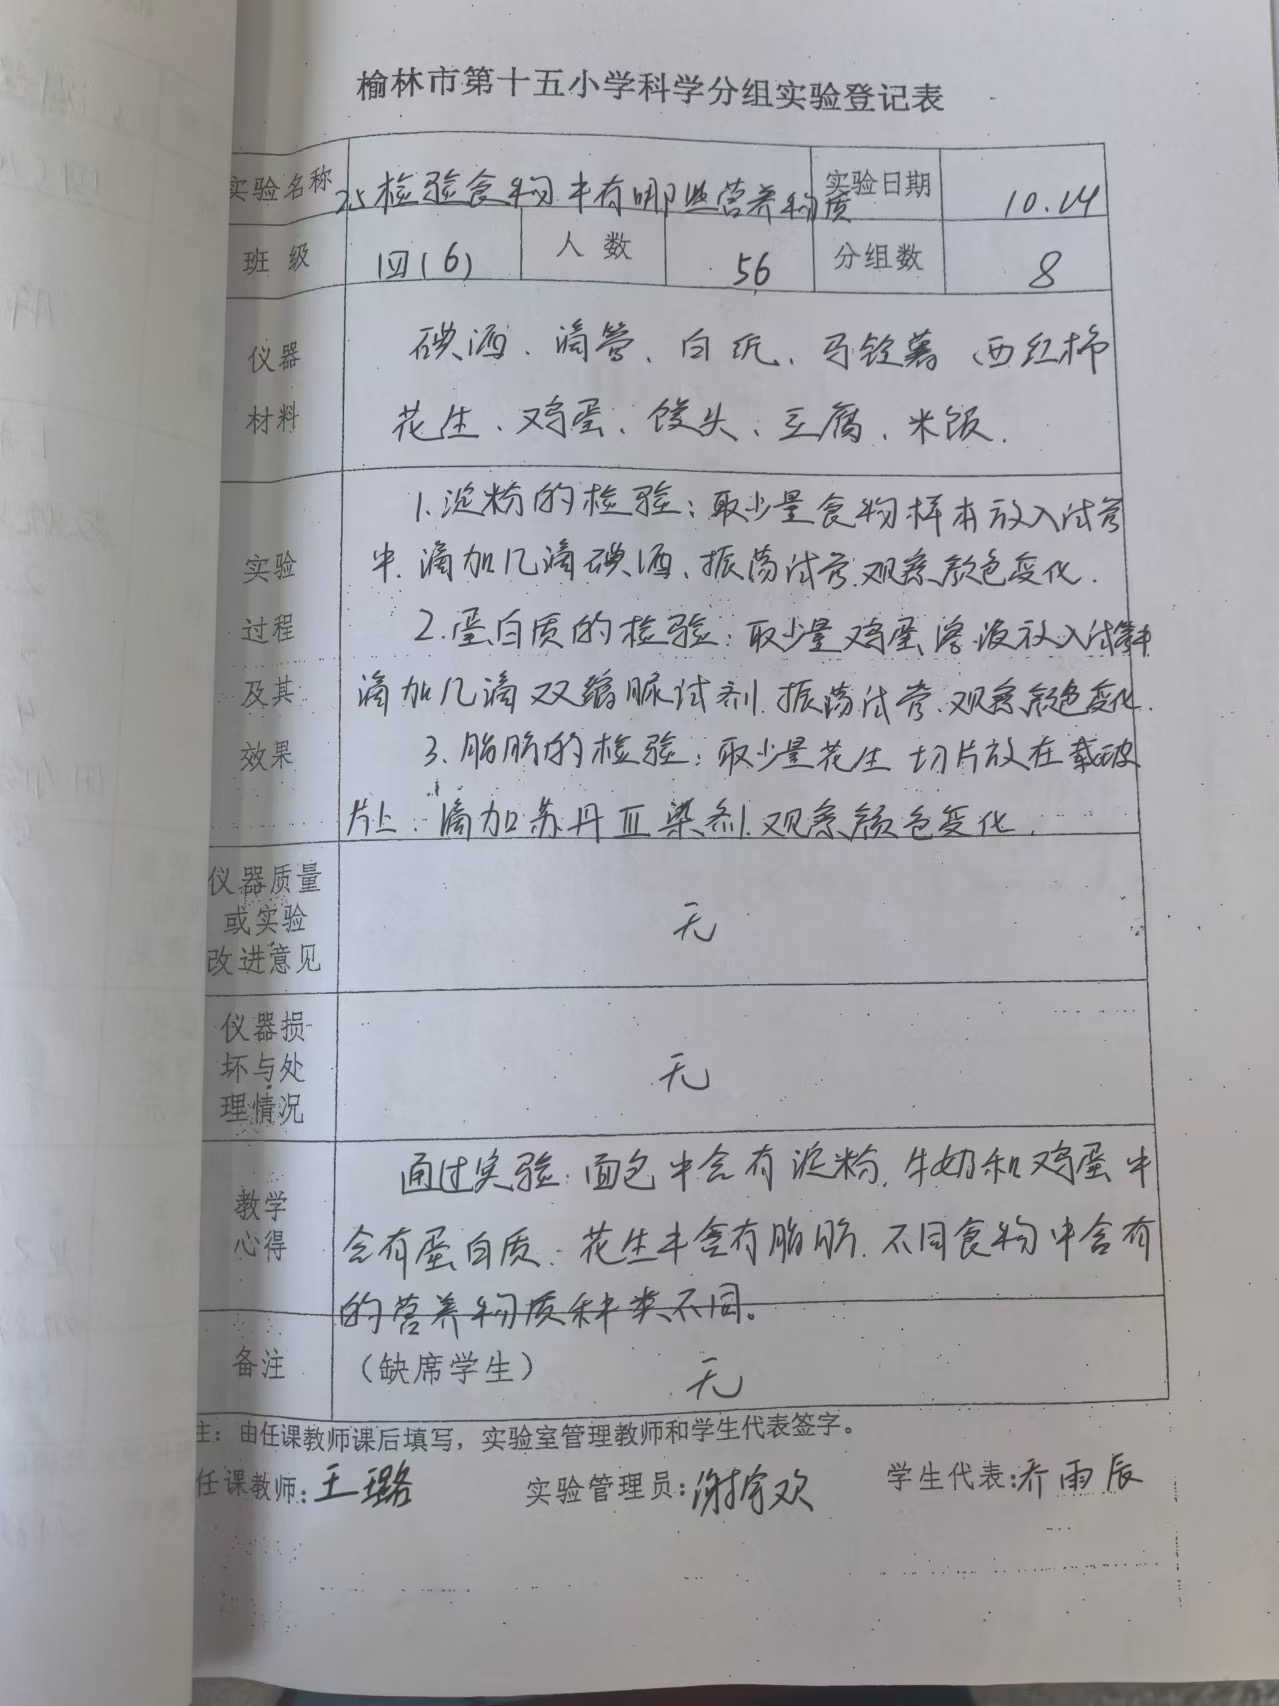 榆林市第十五小学科学分组实验登记表
实验名称 2.5 检验食物中有哪些营养物质 实验日期 10.14
班 级 四(6) 人 数 56 分组数 8
仪器 碘酒、滴管、白纸、马铃薯、西红柿
材料 花生、鸡蛋、馒头、豆腐、米饭.
1.淀粉的检验:取少量食物样本放入试管
实验 中.滴加几滴碘酒、振荡试管.观察颜色变化.
过程 2.蛋白质的检验:取少量鸡蛋溶液放入试管中
及其 滴加几滴双缩脲试剂.振荡试管、观察颜色变化.
效果 3.脂肪的检验:取少量花生切片放在载玻
片上.滴加苏丹Ⅲ染剂.观察颜色变化.
仪器质量
或实验 无
改进意见
仪器损
坏与处 无
理情况
通过实验:面包中含有淀粉.牛奶和鸡蛋中
教学
心得 含有蛋白质.花生中含有脂肪.不同食物中含有
的营养物质种类不同。
备注 (缺席学生) 无
注:由任课教师课后填写,实验室管理教师和学生代表签字。
任课教师:王璐 实验管理员: 学生代表:乔雨辰